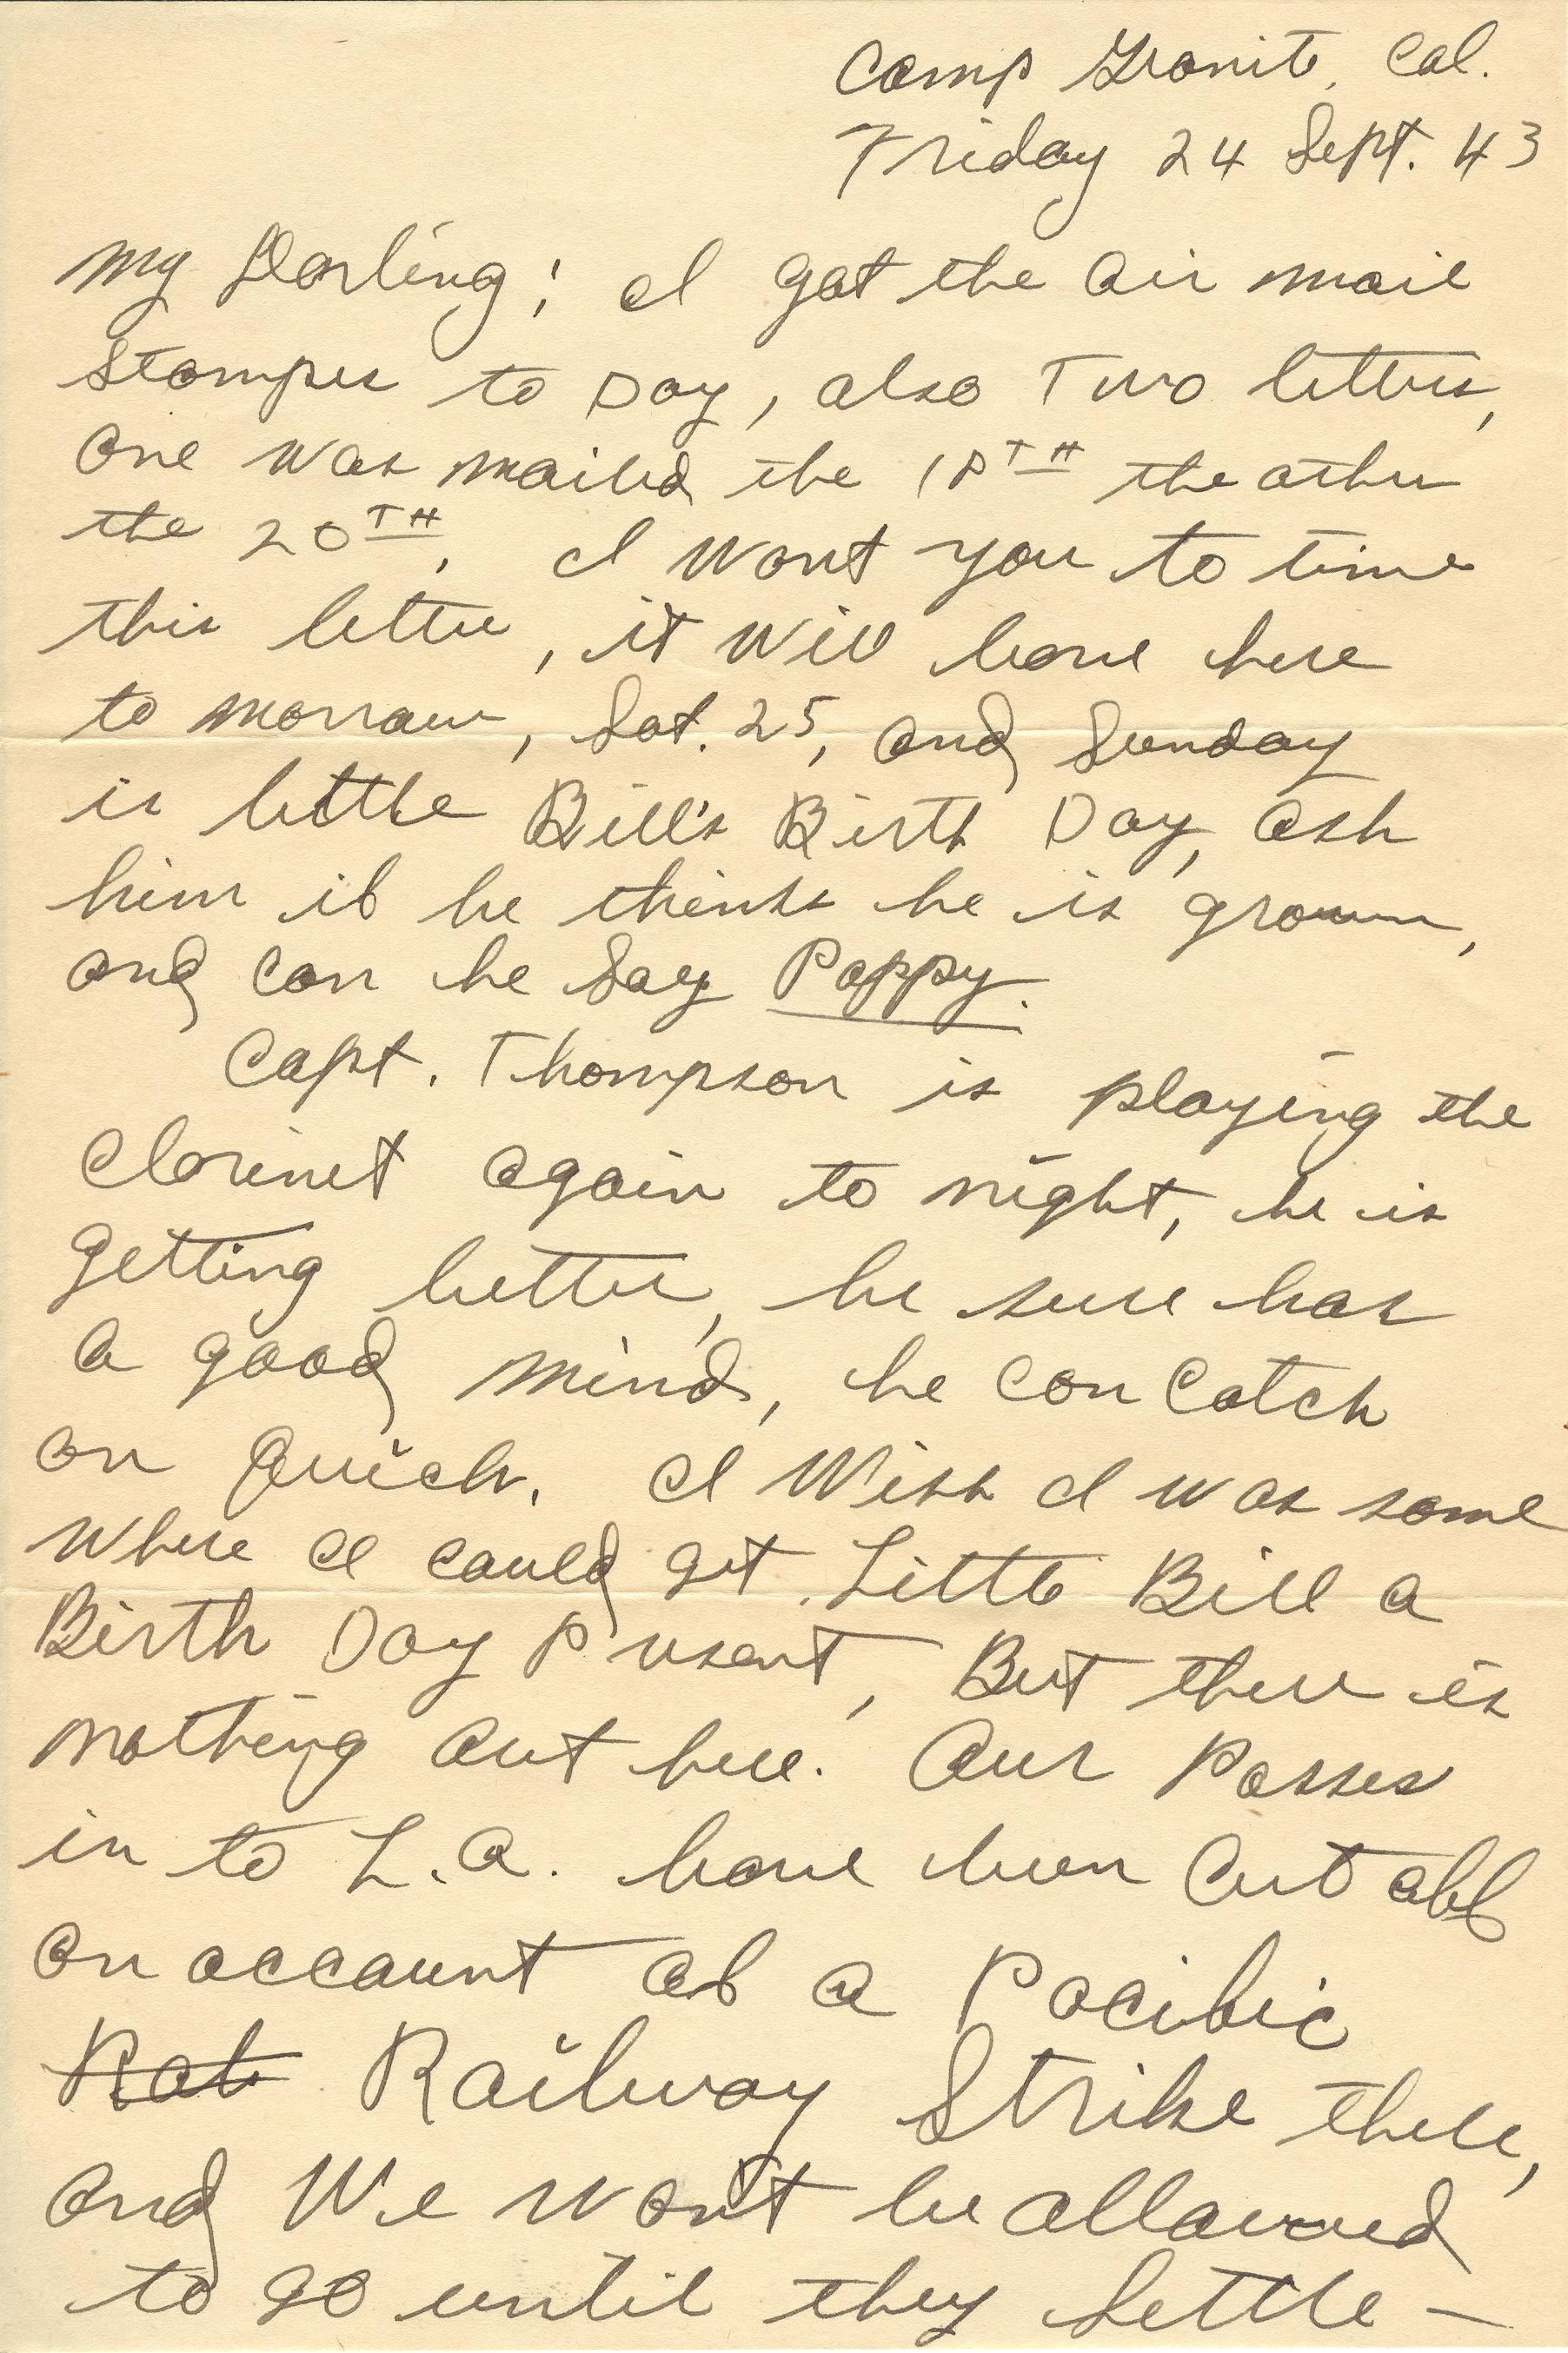 Camp Granit, Cal.
Friday 24 Sept. 43
My Darling; I got the air mail
stamps to Day, also Two letters,
one was mailed the 18TH the other
the 20TH. I want you to time
this letter, it will leave here
to morrow, Sat. 25, and Sunday
is little Bill's Birth Day, ask
him if he thinks he is grown,
and can he say Pappy.
Capt. Thompson is playing the
clarinet again to night, he is
getting better, he sure has
a good mind, he can catch
on quick. I wish I was some
where I could get Little Bill a
Birth Day Present, But there is
nothing out here. Our Passes
in to L.A. have been cut off
on account of a Pacific
Rail Railway Strike there,
and We won't be allowed
to go until they settle —